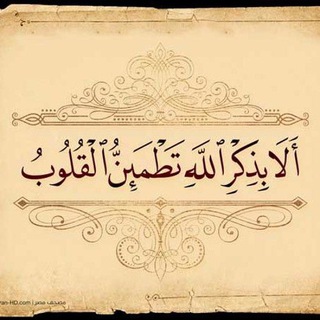 أَلَا بِذِكْرِ ٱللَّهِ تَطْمَئِنُّ ٱلْقُلُوبُ
مصحف مصر | ran-HD.com